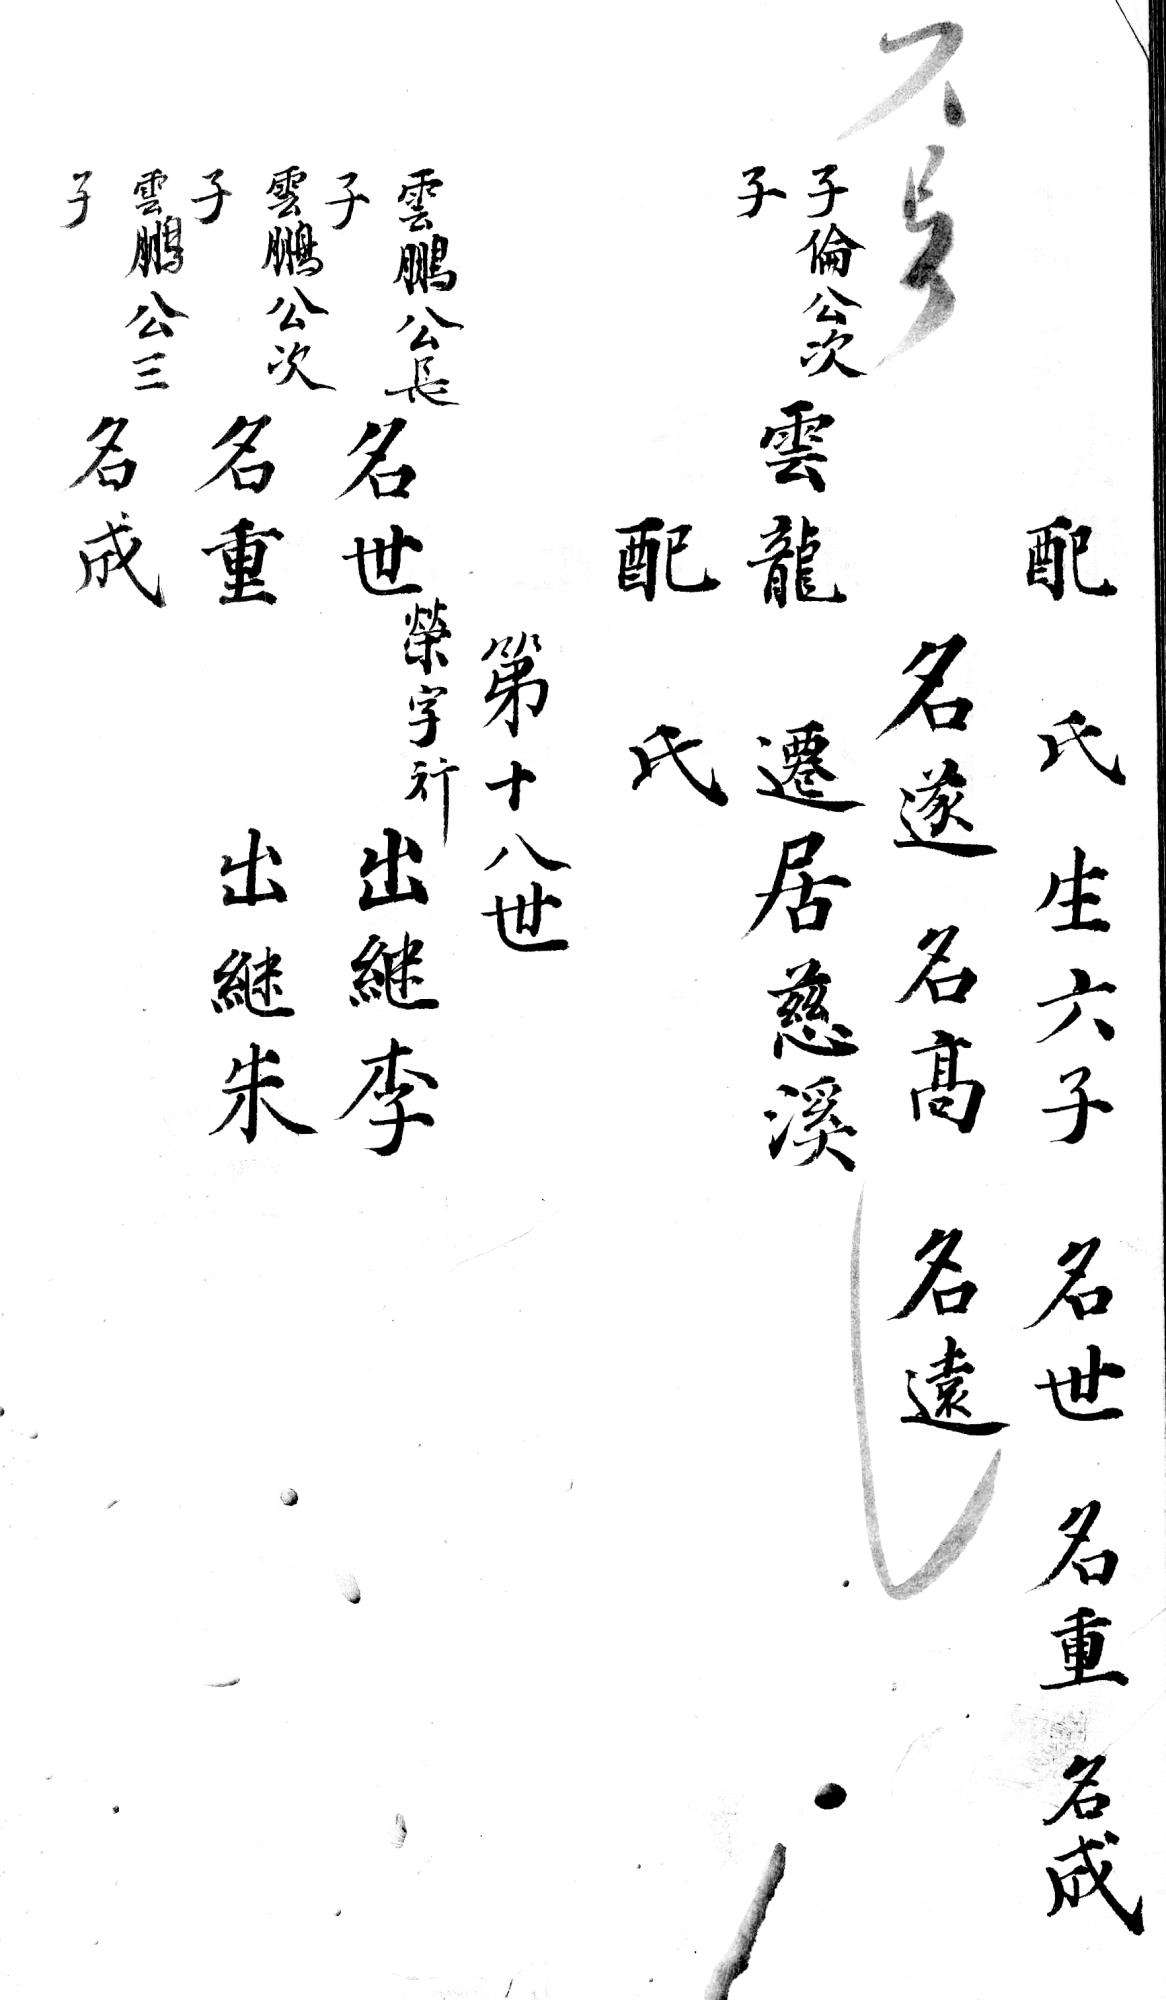 配氏生六子 名世 名重 名成
名遂 名髙 名遠
子倫公次子 雲龍 遷居慈溪
配氏
第十八世
榮字行
雲鵬公長子 名世 出継李
雲鵬公次子 名重 出継朱
雲鵬公三子 名成